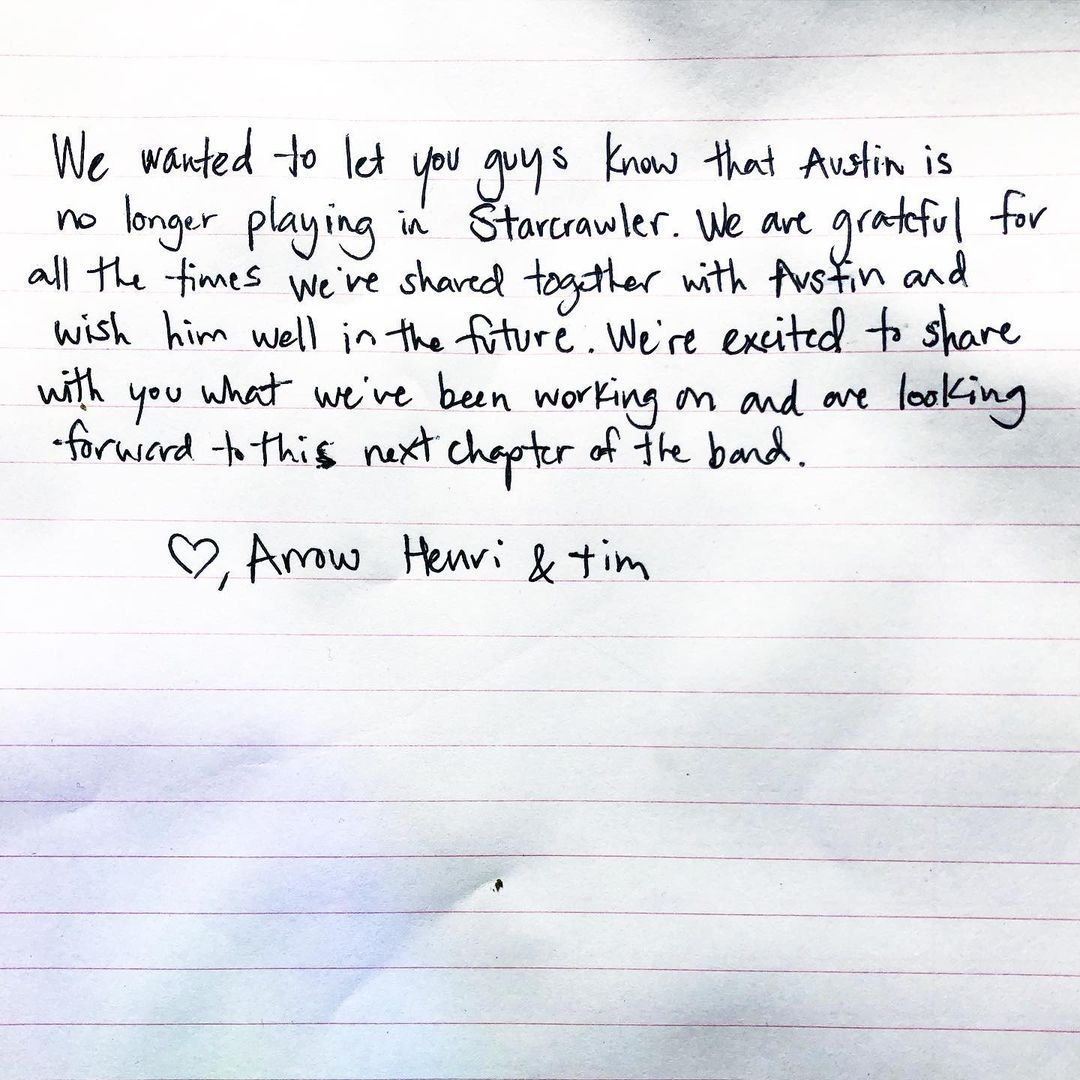 We wanted to let you guys know that Austin is
no longer playing in Starcrawler. We are grateful for
all the times we've shared together with Austin and
wish him well in the future. We're excited to share
with you what we've been working on and are looking
forward to this next chapter of the band.
♡, Arrow Henri & tim